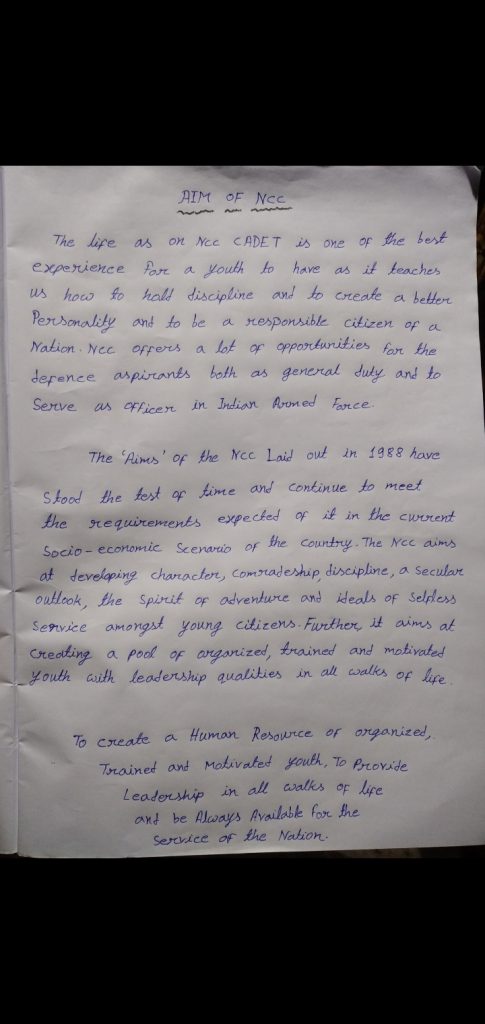 AIM OF NCC
The life as on NCC CADET is one of the best
experience for a youth to have as it teaches
us how to hold discipline and to create a better
Personality and to be a responsible citizen of a
Nation. NCC offers a lot of opportunities for the
defence aspirants both as general duty and to
Serve as officer in Indian Armed Force.
The 'Aims' of the NCC Laid out in 1988 have
Stood the test of time and continue to meet
the requirements expected of it in the current
Socio-economic Scenario of the country. The NCC aims
at developing character, comradeship, discipline, a secular
outlook, the spirit of adventure and ideals of Selfless
Service amongst young citizens. Further, it aims at
Creating a pool of organized, trained and motivated
Youth with leadership qualities in all walks of life.
To create a Human Resource of organized,
Trained and Motivated youth, To Provide
Leadership in all walks of life
and be Always Available for the
Service of the Nation.